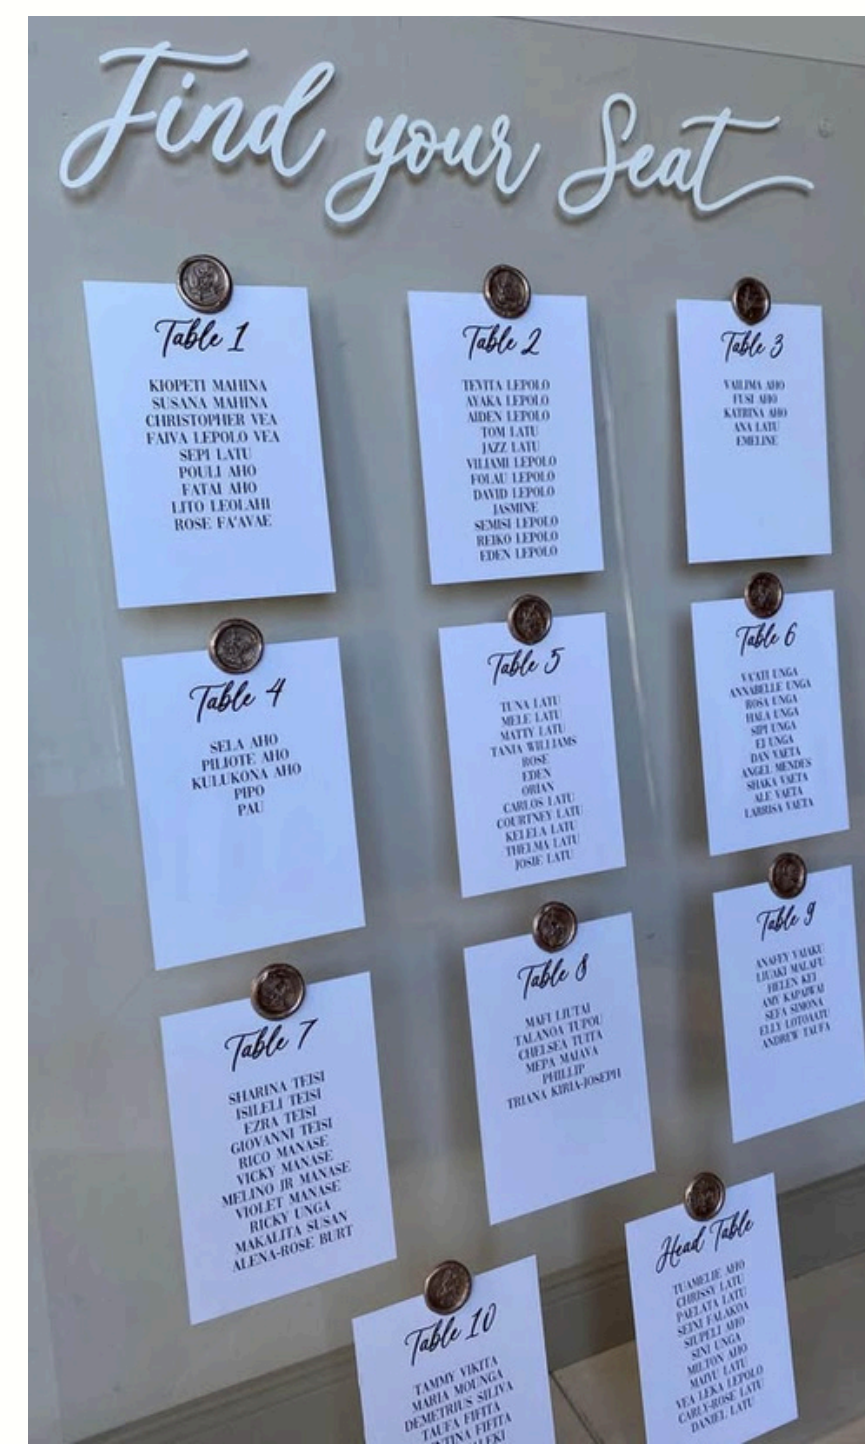 Find your Seat
Table 1
KIOPETI MAHINA
SUSANA MAHINA
CHRISTOPHER VEA
FAIVA LEPOLO VEA
SEPI LATU
POULI AHO
FATAI AHO
LITO LEOLAHI
ROSE FA'AVAE
Table 2
TEVITA LEPOLO
AYAKA LEPOLO
AIDEN LEPOLO
TOM LATU
JAZZ LATU
VILIAMI LEPOLO
FOLAU LEPOLO
DAVID LEPOLO
JASMINE
SEMISI LEPOLO
REIKO LEPOLO
EDEN LEPOLO
Table 3
VAILIMA AHO
FUSI AHO
KATRINA AHO
ANA LATU
EMELINE
Table 4
SELA AHO
PILIOTE AHO
KULUKONA AHO
PIPO
PAU
Table 5
TUNA LATU
MELE LATU
MATTY LATU
TANIA WILLIAMS
ROSE
EDEN
ORIAN
CARLOS LATU
COURTNEY LATU
KELELA LATU
THELMA LATU
JOSIE LATU
Table 6
VA'ATI UNGA
ANNABELLE UNGA
ROSA UNGA
HALA UNGA
SIPI UNGA
EJ UNGA
DAN VAETA
ANGEL MENDES
SHAKA VAETA
ALE VAETA
LARRISA VAETA
Table 7
SHARINA TEISI
ISILELI TEISI
EZRA TEISI
GIOVANNI TEISI
RICO MANASE
VICKY MANASE
MELINO JR MANASE
VIOLET MANASE
RICKY UNGA
MAKALITA SUSAN
ALENA-ROSE BURT
Table 8
MAFI LIUTAI
TALANOA TUPOU
CHELSEA TUITA
MEPA MAIAVA
PHILLIP
TRIANA KIRIA-JOSEPH
Table 9
ANAFEY VAIAKU
LIUAKI MALAFU
HELEN KEI
AMY KAPAIWAI
SEFA SIMONA
ELLY LOTOAATU
ANDREW TAUFA
Table 10
TAMMY VIKITA
MARIA MOUNGA
DEMETRIUS SILIVA
TAUFA FIFITA
FIFITA
Head Table
TUAMELIE AHO
CHRISSY LATU
PAELATA LATU
SEINI FALAKOA
SIUPELI AHO
SINI UNGA
MILTON AHO
MAIVU LATU
VEA LEKA LEPOLO
CARLY-ROSE LATU
DANIEL LATU